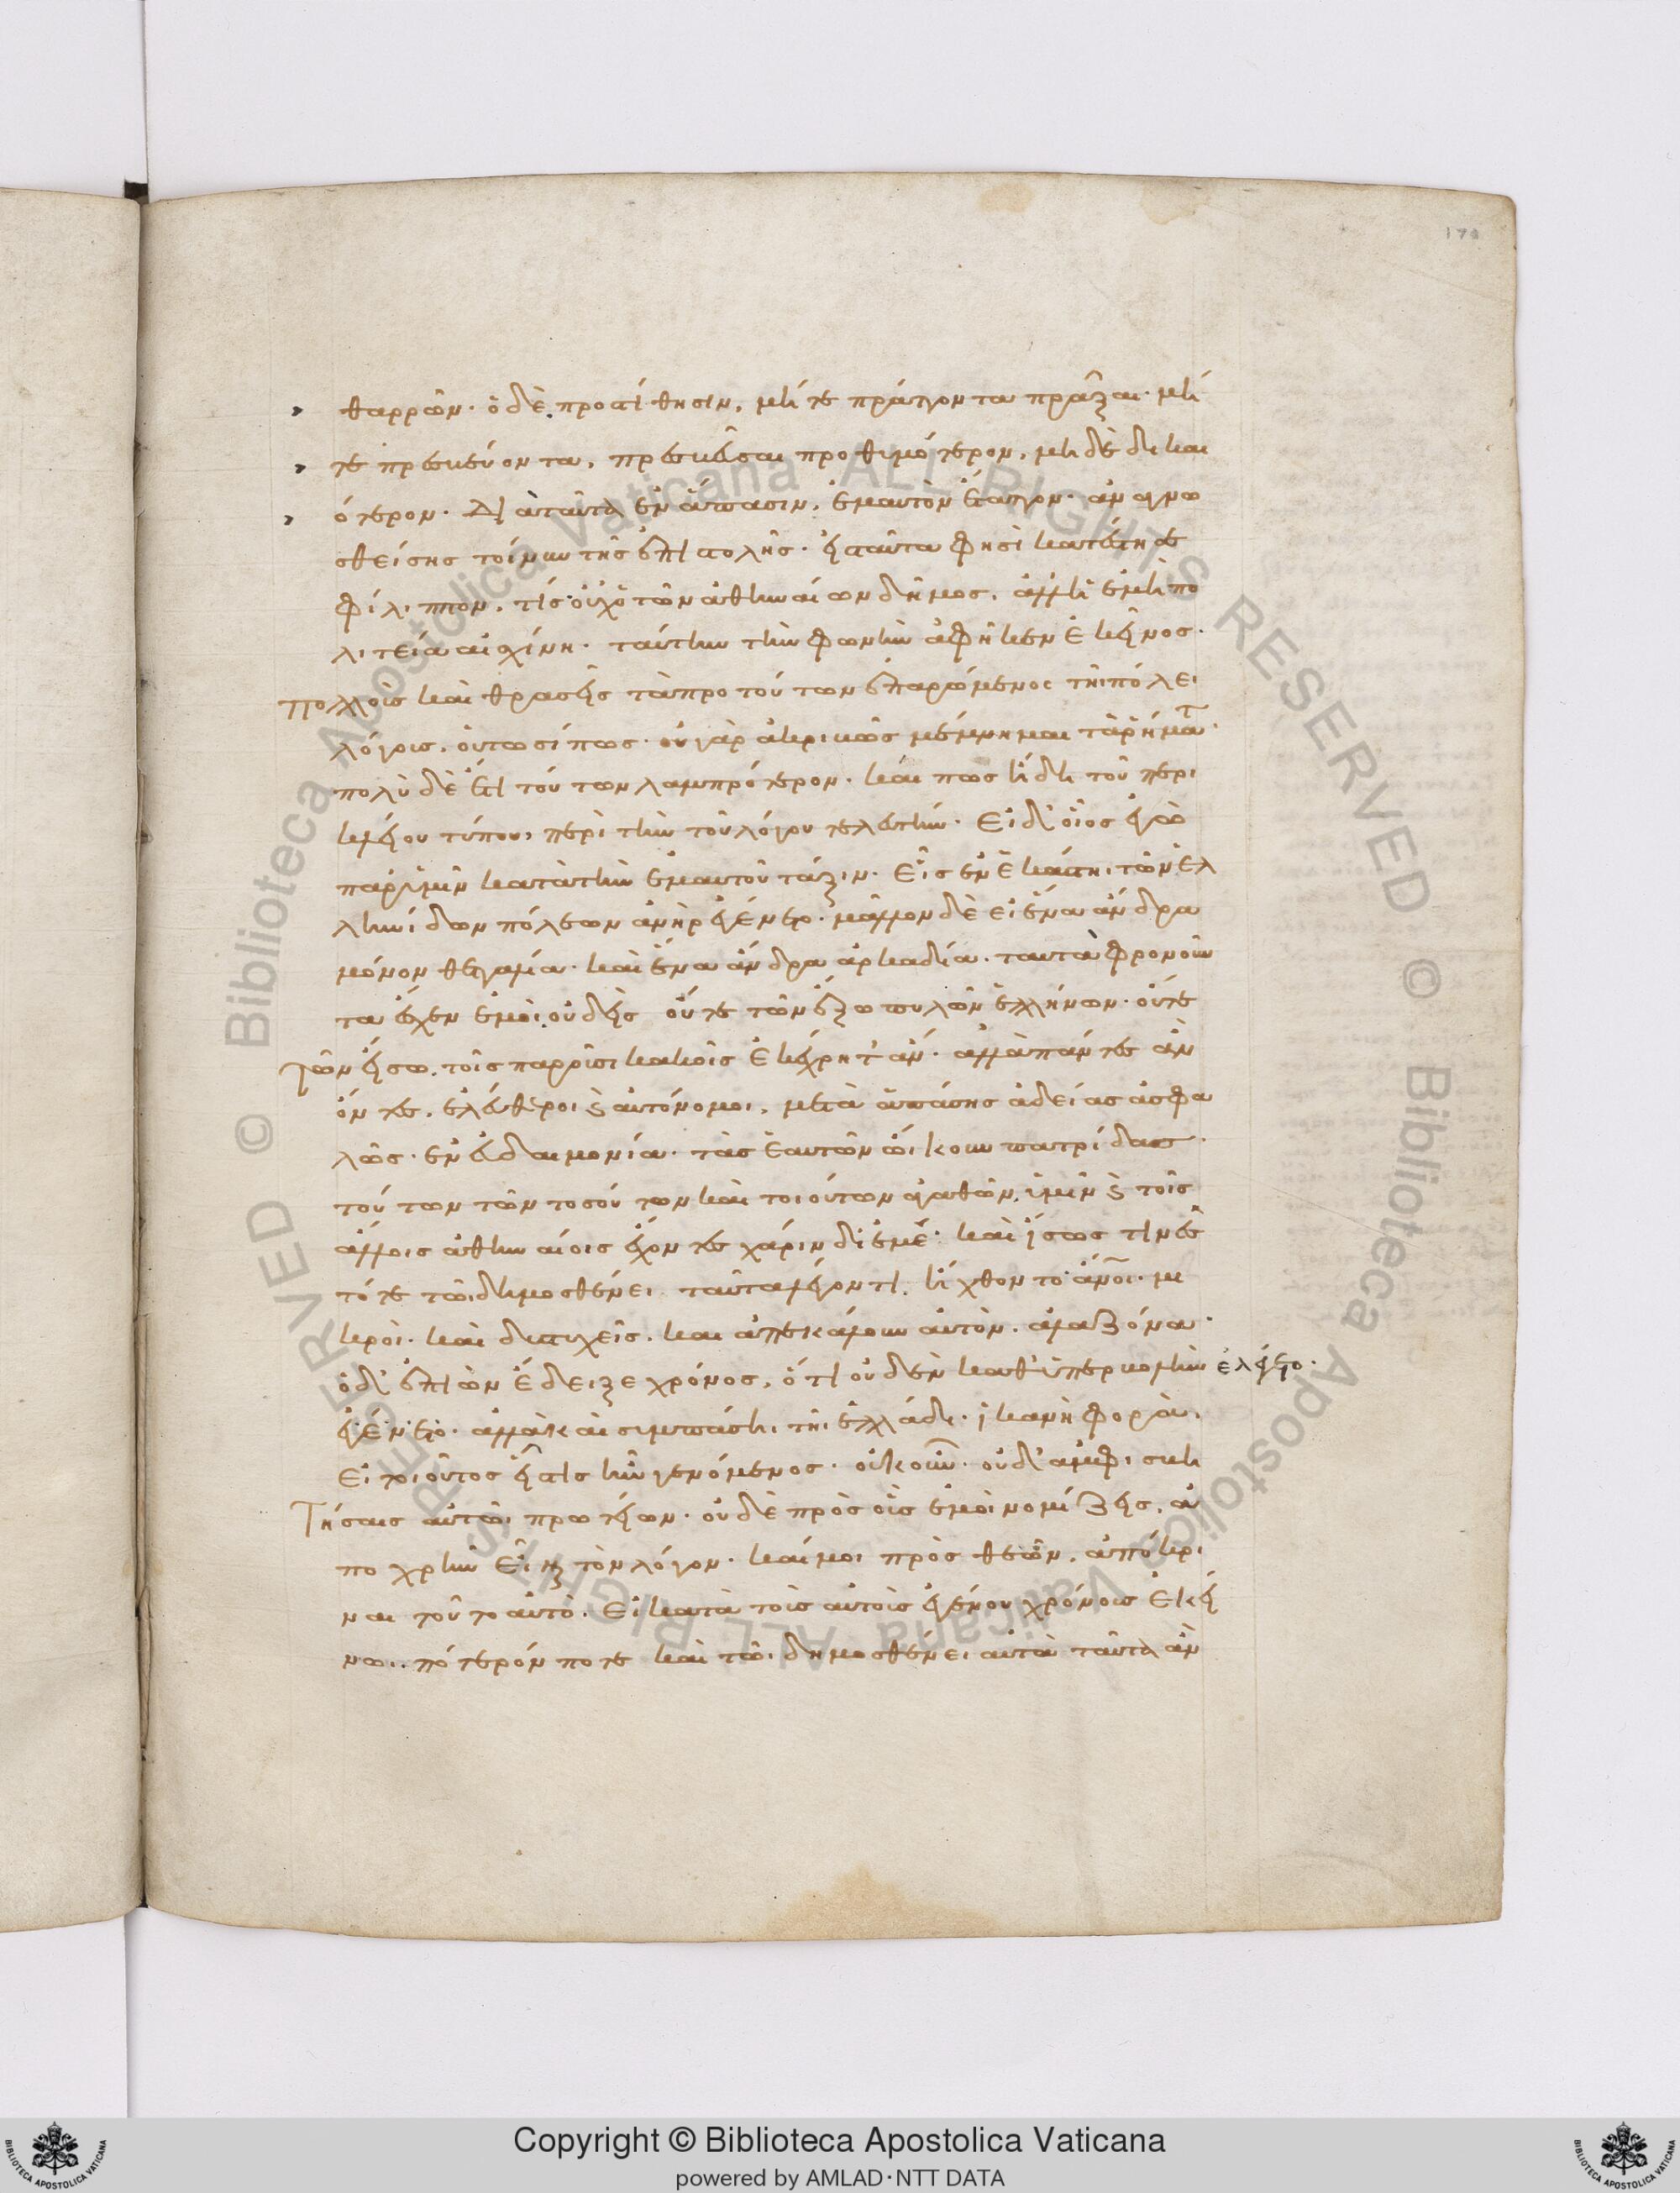 170
θαρρῶν· ὁ δὲ προστίθησιν, μήτε πράττοντα πρᾶξαι· μή
τε πρεσβεύοντα, πρεσβεῦσαι προθυμότερον, μὴ δὲ δικαι
ότερον. διὰ ταῦτα ἐν ἅπασιν, ἐμαυτὸν ἔταττον· ἀναγνω
σθείσης τοίνυν τῆς ἐπιστολῆς· εἰς ταῦτα φησὶ κατέστησε
φίλιππον, τίς οὐχ ὁ τῶν ἀθηναίων δῆμος, ἀλλ' ἡ ἐμὴ πο
λιτεία αἰσχίνη· ταύτην τὴν φωνὴν ἀφῆκεν ἐκεῖνος·
πολλοῖς καὶ θρασέσι τὰ πρὸ τούτων ἐπαρώμενος τῆι πόλει
λόγοις, οὑτωσί πως· οὐ γὰρ ἀκριβῶς μέμνημαι τὰ ῥήματα·
πολὺ δὲ ἔτι τούτων λαμπρότερον· καί πως ἤδη τοῦ περι
κλέους τύπου, περὶ τὴν τοῦ λόγου τελευτήν· Εἰ δ' οἷος ἐγὼ
παρ' ὑμῖν κατὰ τὴν ἐμαυτοῦ τάξιν· Εἷς ἐν ἑκάστηι τῶν ἑλ
ληνίδων πόλεων ἀνὴρ ἐγένετο· μᾶλλον δὲ εἰ ἕνα ἄνδρα
μόνον θετταλία· καὶ ἕνα ἄνδρα ἀρκαδία· ταυτὰ φρονοῦν
τα ἔσχεν ἐμοὶ, οὐδεὶς οὔτε τῶν ἔξω πυλῶν ἑλλήνων· οὔτε
τῶν εἴσω, τοῖς παροῦσι κακοῖς ἐκέχρητ' ἄν· ἀλλὰ πάντες ἂν
ὄντες, ἐλεύθεροι καὶ αὐτόνομοι, μετὰ ἁπάσης ἀδείας ἀσφα
λῶς· ἐν εὐδαιμονία· τὰς ἑαυτῶν ὤικουν πατρίδας·
τούτων τῶν τοσούτων καὶ τοιούτων ἀγαθῶν, ὑμῖν καὶ τοῖς
ἄλλοις ἀθηναίοις ἔχοντες χάριν δι' ἐμέ· καὶ ἴσως τινὲς
τότε τῶι δημοσθένει ταῦτα λέγοντι, ἤχθοντο ἄνθρωποι· μι
κροὶ· καὶ δυστυχεῖς. καὶ ἀπεκάλουν αὐτὸν, ἀλαζόνα·
ὁ δ' ἐπιὼν ἔδειξε χρόνος, ὅτι οὐδὲν καθ' ὑπερβολὴν ἐλέγετο·
ἐγένετο· ἀλλὰ καὶ συμπάσηι τῆι ἑλλάδι· ἱκανὴ φορὰ,
εἰ τοιοῦτος εἷς τις ἦν γενόμενος· οὐκοῦν· οὐδ' ἀμφισβη
τήσαις αὐτῶι πρωτείων· οὐδὲ πρὸς οἷς ἐμοὶ νομίζεις, ἀ
ποχρῆν εἶναι τὸν λόγον· καί μοι πρὸς θεῶν, ἀπόκρι
ναι τοῦτο αὐτὸ. Εἰ κατὰ τοὺς αὐτοὺς ἐγένου χρόνους ἐκεί
νωι, πότερόν ποτε καὶ τῶι δημοσθένει αὐτὰ ταῦτα ἂν
Copyright © Biblioteca Apostolica Vaticana
powered by AMLAD·NTT DATA